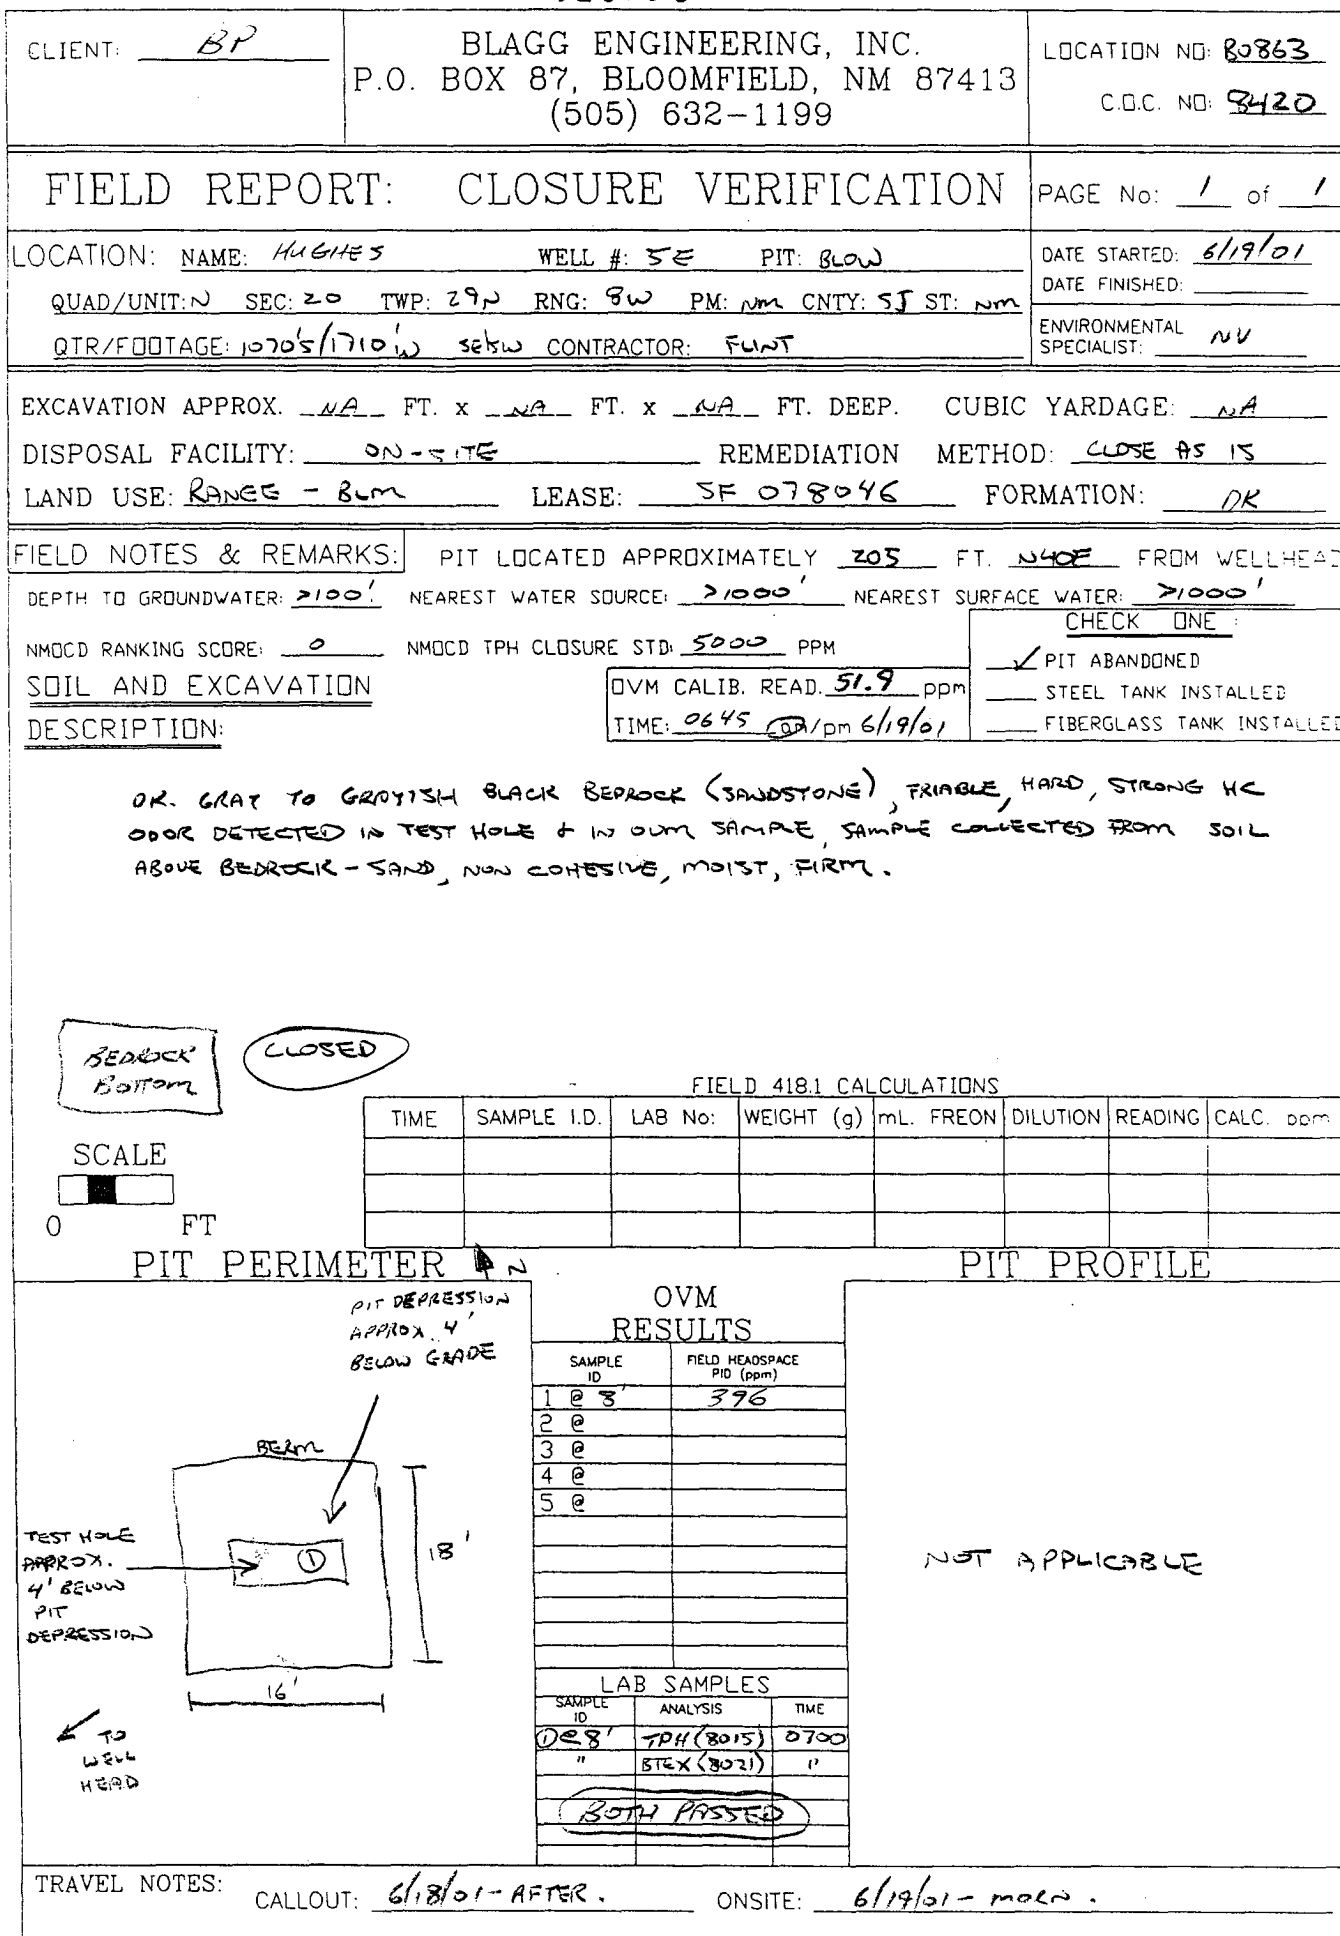 CLIENT: BP
BLAGG ENGINEERING, INC.
P.O. BOX 87, BLOOMFIELD, NM 87413
(505) 632-1199
LOCATION NO: B0863
C.O.C. NO: 8420
FIELD REPORT: CLOSURE VERIFICATION
PAGE No: 1 of 1
LOCATION: NAME: HUGHES WELL #: 5E PIT: BLOW
QUAD/UNIT: N SEC: 20 TWP: 29N RNG: 8W PM: NM CNTY: SJ ST: NM
QTR/FOOTAGE: 1070'S/1710'W SE/SW CONTRACTOR: FLINT
DATE STARTED: 6/19/01
DATE FINISHED:
ENVIRONMENTAL
SPECIALIST: NV
EXCAVATION APPROX. NA FT. x NA FT. x NA FT. DEEP. CUBIC YARDAGE: NA
DISPOSAL FACILITY: ON-SITE REMEDIATION METHOD: CLOSE AS IS
LAND USE: RANGE - BLM LEASE: SF 078046 FORMATION: DK
FIELD NOTES & REMARKS: PIT LOCATED APPROXIMATELY 205 FT. N40E FROM WELLHEAD
DEPTH TO GROUNDWATER: >100' NEAREST WATER SOURCE: >1000' NEAREST SURFACE WATER: >1000'
NMOCD RANKING SCORE: 0 NMOCD TPH CLOSURE STD: 5000 PPM
CHECK ONE :
✓ PIT ABANDONED
STEEL TANK INSTALLED
FIBERGLASS TANK INSTALLED
SOIL AND EXCAVATION
DESCRIPTION:
OVM CALIB. READ. 51.9 ppm
TIME: 0645 am/pm 6/19/01
DK. GRAY TO GRAYISH BLACK BEDROCK (SANDSTONE), FRIABLE, HARD, STRONG HC
ODOR DETECTED IN TEST HOLE & IN OVM SAMPLE, SAMPLE COLLECTED FROM SOIL
ABOVE BEDROCK - SAND, NON COHESIVE, MOIST, FIRM.
BEDROCK
BOTTOM
CLOSED
FIELD 418.1 CALCULATIONS
TIME SAMPLE I.D. LAB No: WEIGHT (g) mL. FREON DILUTION READING CALC. ppm
SCALE
0 FT
PIT PERIMETER N
PIT PROFILE
PIT DEPRESSION
APPROX. 4'
BELOW GRADE
BERM
TEST HOLE
APPROX.
4' BELOW
PIT
DEPRESSION
1
18'
16'
TO
WELL
HEAD
OVM
RESULTS
SAMPLE ID FIELD HEADSPACE PID (ppm)
1 @ 8' 396
2 @
3 @
4 @
5 @
NOT APPLICABLE
LAB SAMPLES
SAMPLE ID ANALYSIS TIME
①@8' TPH (8015) 0700
" BTEX (8021) "
BOTH PASSED
TRAVEL NOTES: CALLOUT: 6/18/01 - AFTER. ONSITE: 6/19/01 - MORN.